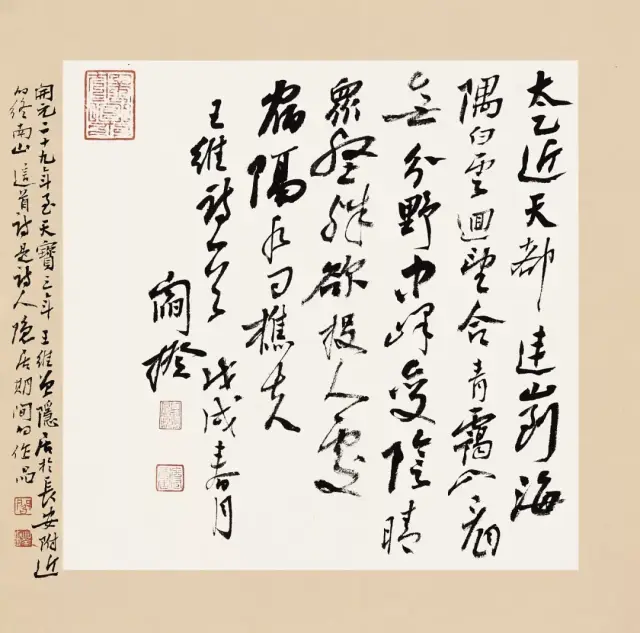 太乙近天都連山到海
隅白雲迴望合青靄入看
無分野中峰變陰晴
衆壑殊欲投人處
宿隔水問樵夫
王維詩一首 戊戌春月
開元二十九年至天寶三年王維曾隱居於長安附近
的終南山這首詩是詩人隱居期間的作品